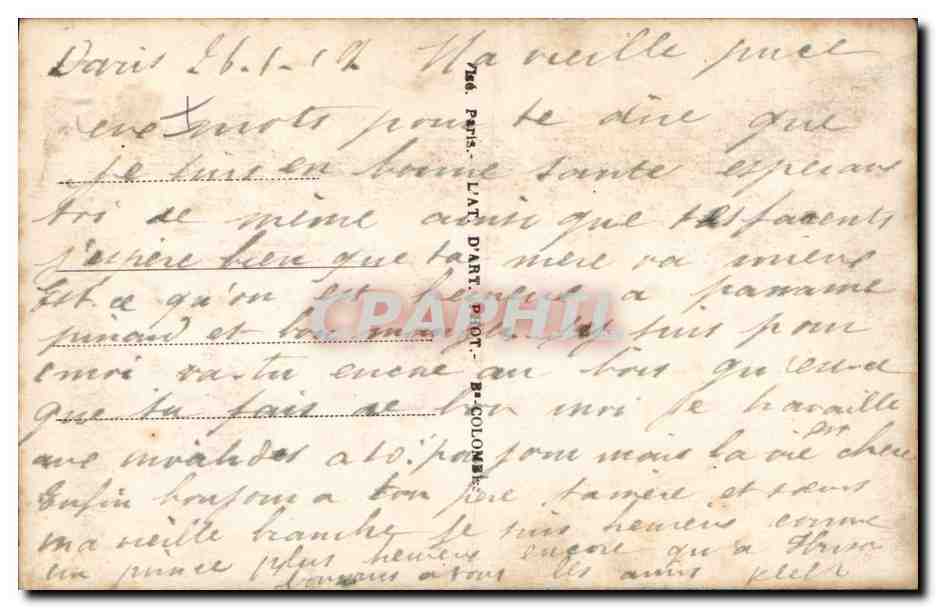 Paris 26-1-19 Ma vieille puce
mots pour te dire que
je suis en bonne santé esperant
toi de même ainsi que tes parents
j'espère bien que ta mère va mieux
Est ce qu'on est heureux a paname
pinard et bon manger j'y suis pour
moi vas tu encore au bois qu'est ce
que tu fais de bon moi je travaille
aux invalides a 10f par jour mais la vie est chere
Enfin bonjour a ton père ta mère et soeurs
ma vieille branche je suis heureux comme
un prince plus heureux encore qu'a
bonjour à tous les amis
Visé. Paris.- L'AT. D'ART. PHOT.- Bs-COLOMBES
CPAPHIL